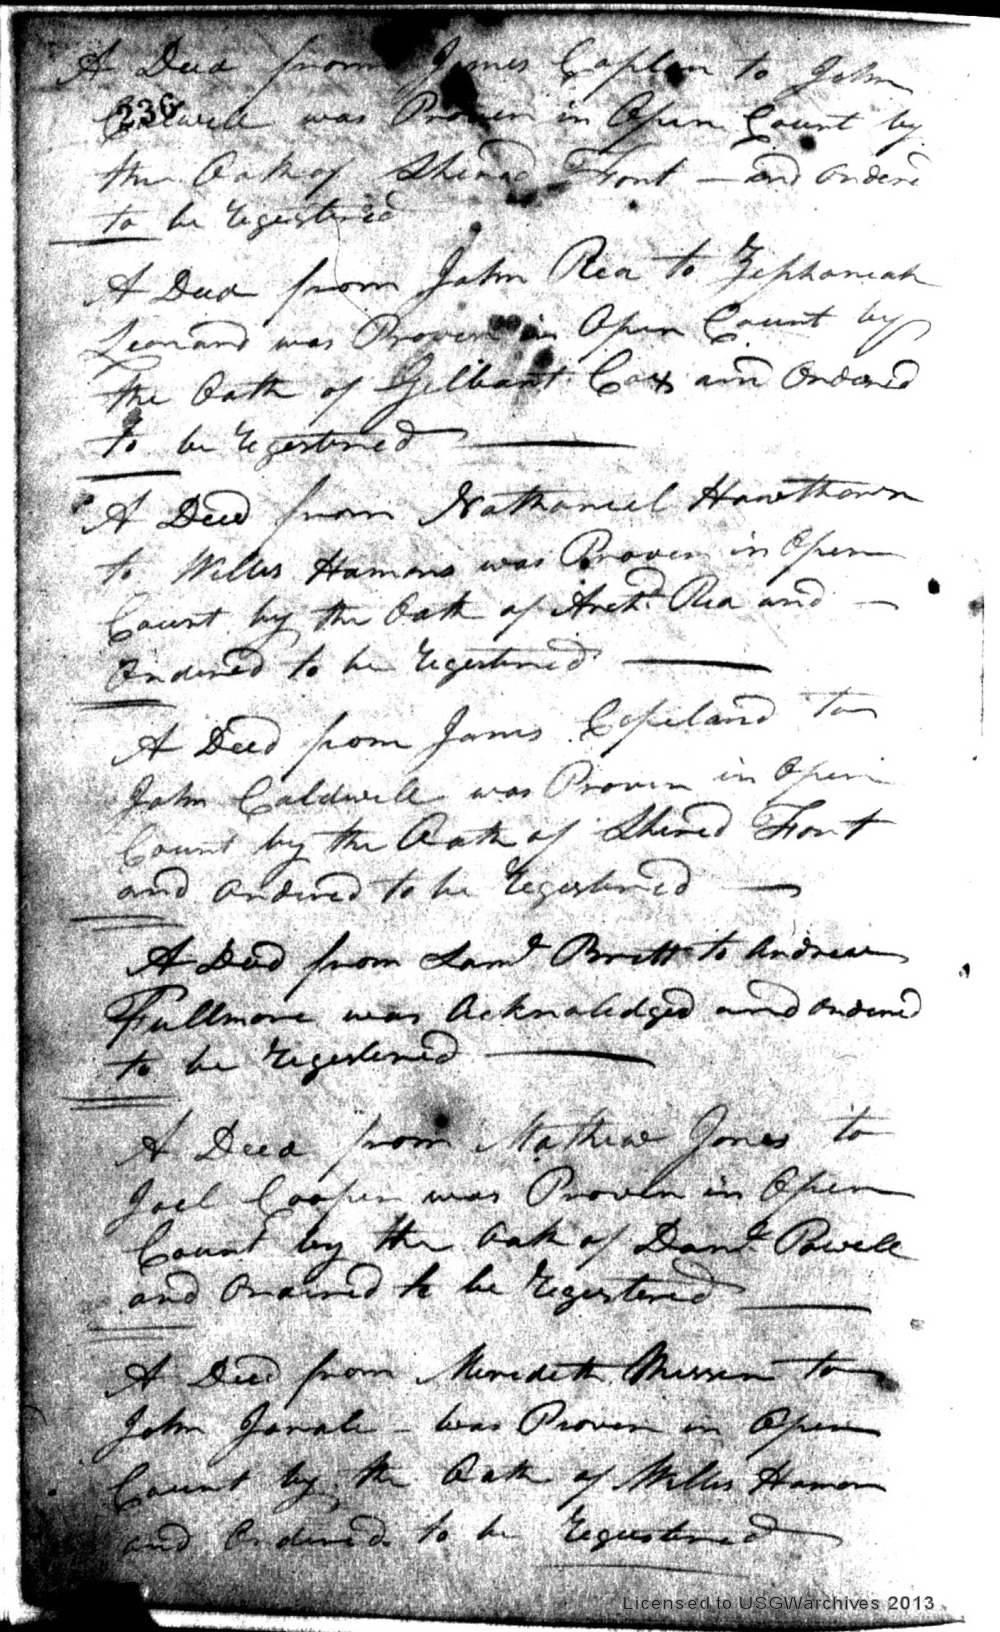 A Deed from James Coplin to John
236
Caldwell was Proven in Open Court by
the Oath of Shered Fort — and Ordered
to be Regestered
A Deed from John Rea to Zephaniah
Leonard was Proven in Open Court by
the Oath of Gilbart Cox and Ordered
to be Regestered
A Deed from Nathaniel Hawthorn
to Willis Hamons was Proven in Open
Court by the Oath of Archd Rea and —
Ordered to be Regestered
A Deed from James Copeland to
John Caldwell was Proven in Open
Court by the Oath of Shered Fort
and Ordered to be Regestered
A Deed from Saml Britt to Andrew
Fullmore was Acknoledged and Ordered
to be Regestered
A Deed from Mathew Jones to
Joel Cooper was Proven in Open
Court by the Oath of Danl Powell
and Ordered to be Regestered
A Deed from Merideth to
John was Proven in Open
Court by the Oath of Willis Hamon
and Ordered to be Regestered
Licensed to USGWarchives 2013